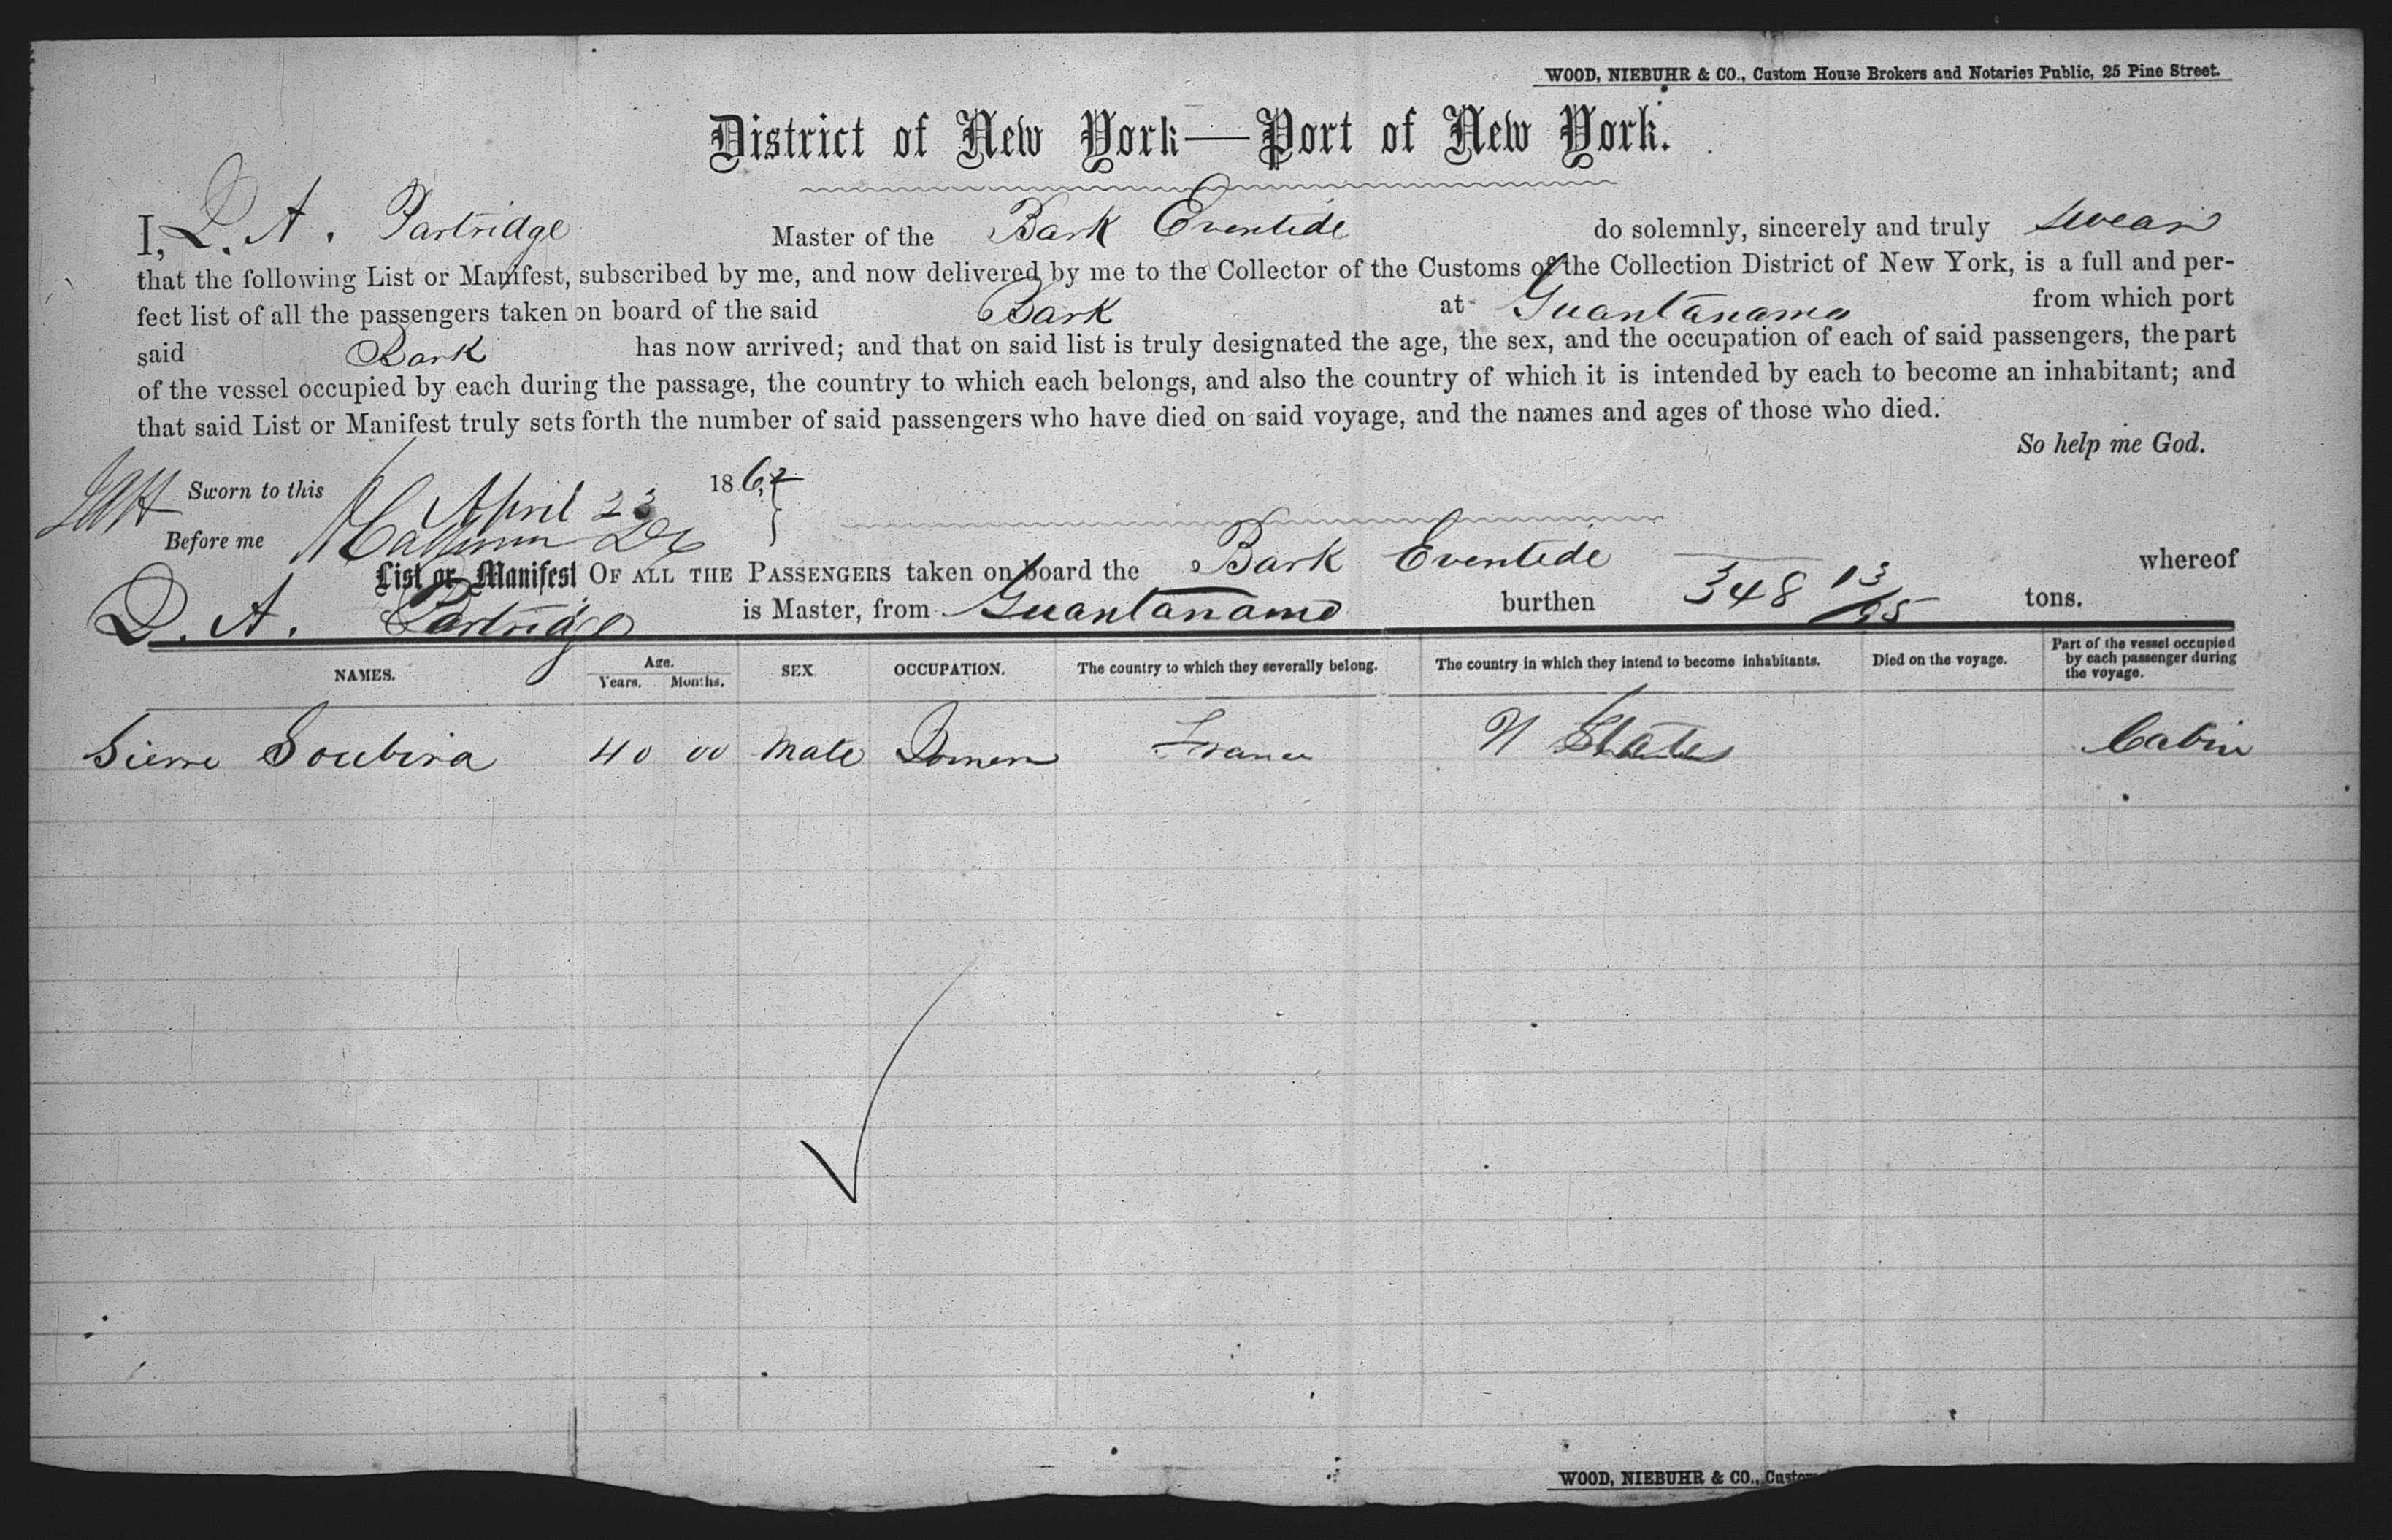 WOOD, NIEBUHR & CO., Custom House Brokers and Notaries Public, 25 Pine Street.
District of New York—Port of New York.
I, D. A. Partridge Master of the Bark Eventide do solemnly, sincerely and truly swear
that the following List or Manifest, subscribed by me, and now delivered by me to the Collector of the Customs of the Collection District of New York, is a full and per-
fect list of all the passengers taken on board of the said Bark at Guantanamo from which port
said Bark has now arrived; and that on said list is truly designated the age, the sex, and the occupation of each of said passengers, the part
of the vessel occupied by each during the passage, the country to which each belongs, and also the country of which it is intended by each to become an inhabitant; and
that said List or Manifest truly sets forth the number of said passengers who have died on said voyage, and the names and ages of those who died.
So help me God.
Sworn to this April 23 1862
Before me
List or Manifest OF ALL THE PASSENGERS taken on board the Bark Eventide whereof
D. A. Partridge is Master, from Guantanamo burthen 348 13/95 tons.
NAMES. Age. Years. Months. SEX OCCUPATION. The country to which they severally belong. The country in which they intend to become inhabitants. Died on the voyage. Part of the vessel occupied by each passenger during the voyage.
Soubira 40 00 Male France U States Cabin
WOOD, NIEBUHR & CO., Custom